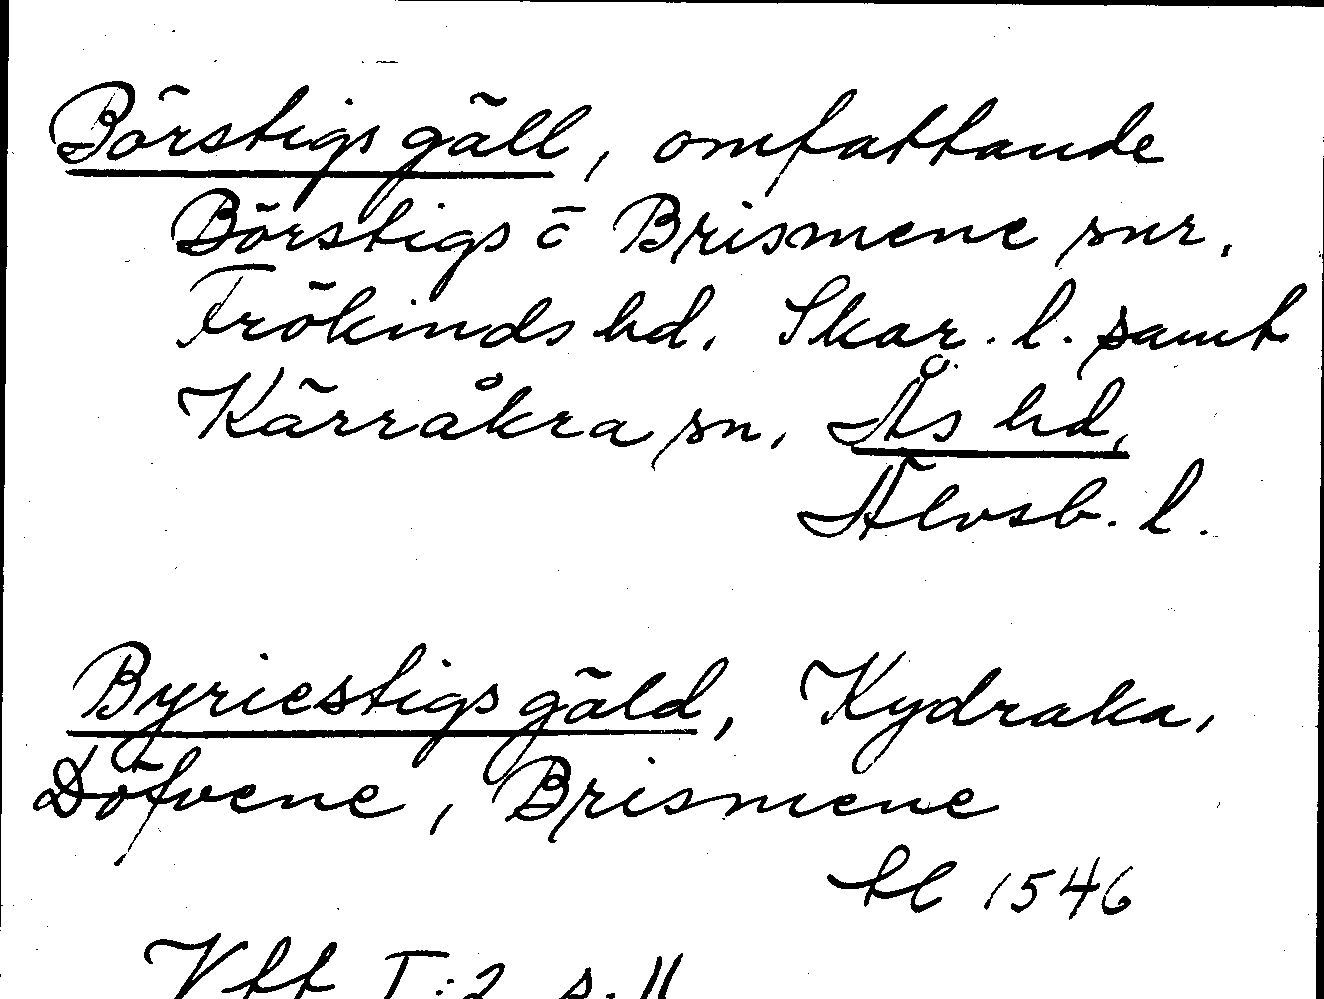 Börstigs gäll, omfattande
Börstigs o Brismene snr.
Frökinds hd. Skar. l. samt
Kärråkra sn. Ås hd,
Älvsb. l.
Byriestigs gäld, Kydraka,
Döfvene, Brismene
hl 1546
Vff I:2 s. 11